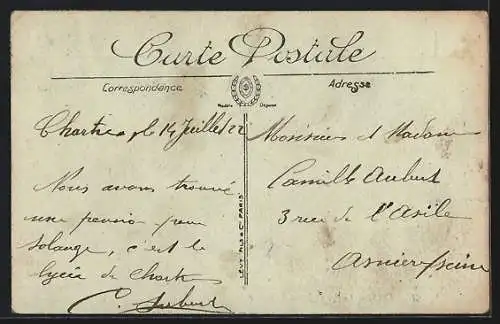 Carte Postale
Correspondance
Adresse
Chartres le 14 Juillet 22
Nous avons trouvé
une pension pour
Solange, c'est le
lycée de Chart
C. Aubert
LEVY FILS & Cie PARIS
Monsieur et Madame
Camille Aubert
3 rue de l'Asile
Asnières/seine